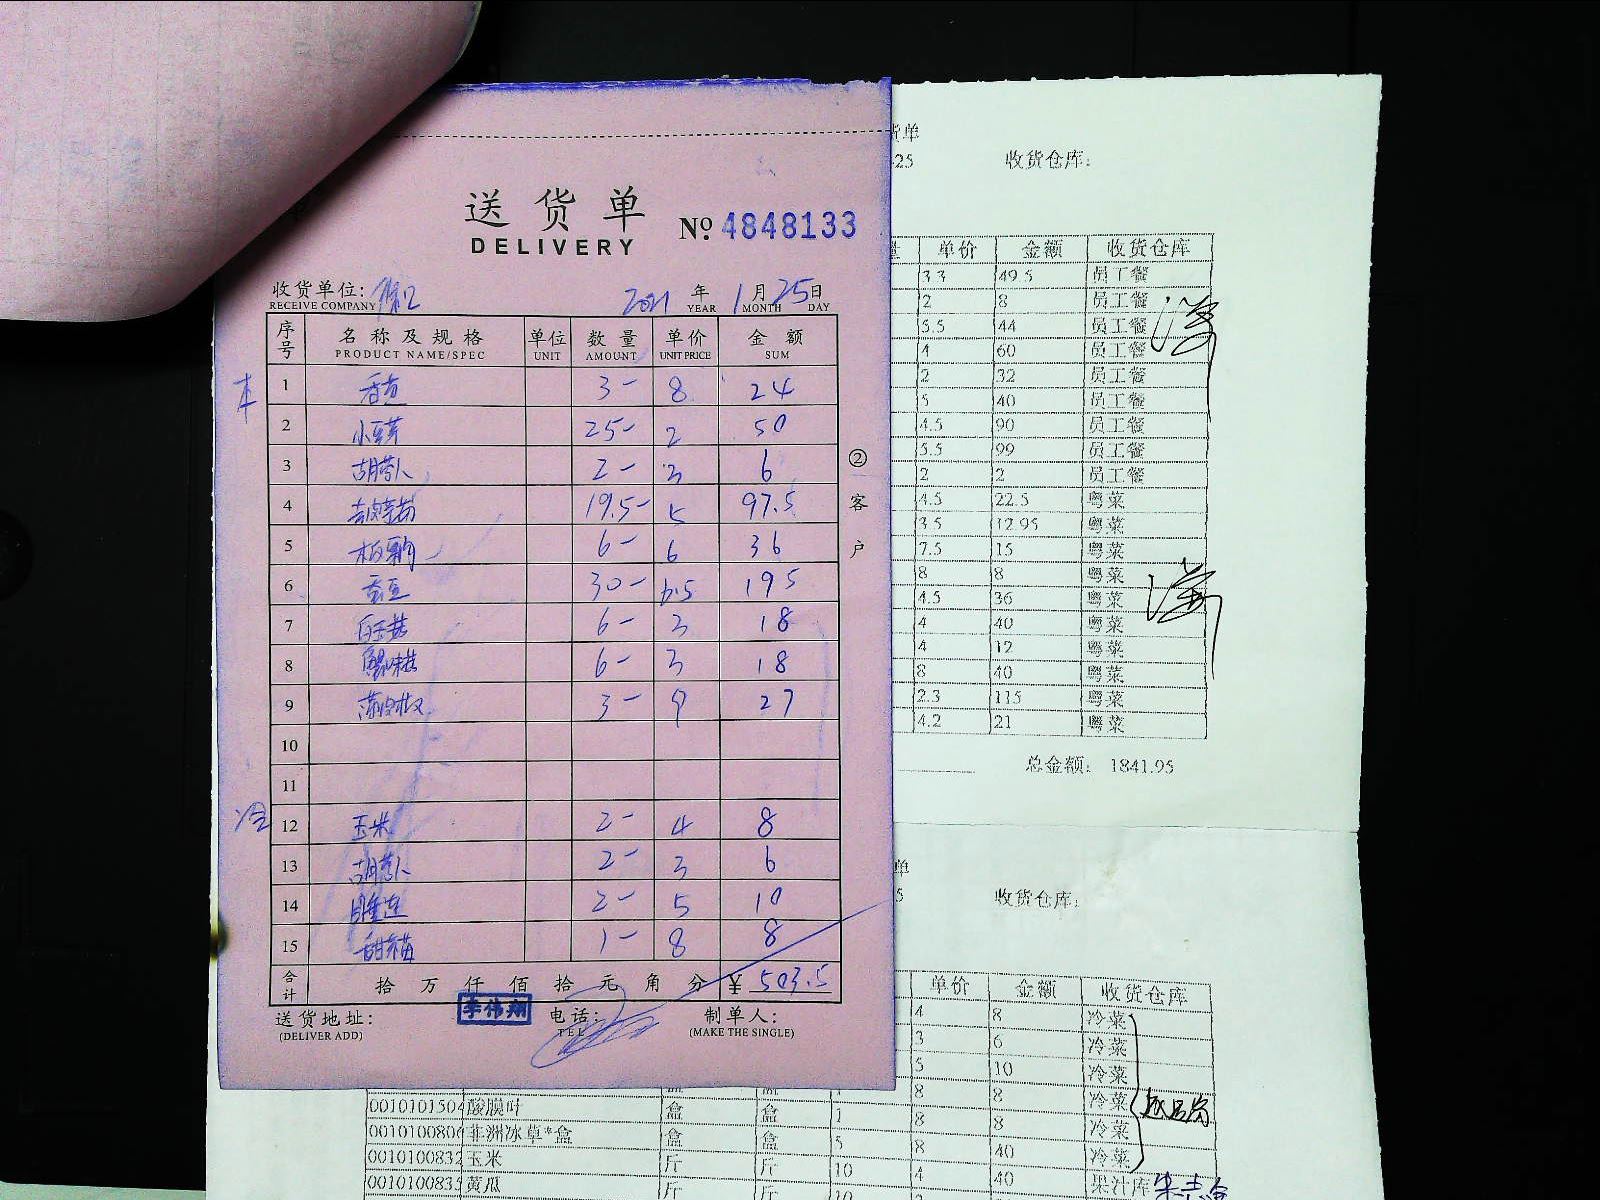 送货单
DELIVERY
№ 4848133
收货单位:
RECEIVE COMPANY
2021 年 1 月 25 日
YEAR MONTH DAY
序号 名称及规格 单位 数量 单价 金额
PRODUCT NAME/SPEC UNIT AMOUNT UNIT PRICE SUM
本
1 香芹 3- 8 24
2 小豆芽 25- 2 50
3 胡萝卜 2- 3 6
4 19.5- 5 97.5
5 6- 6 36
6 30- 6.5 195
7 白玉菇 6- 3 18
8 蟹味菇 6- 3 18
9 薄皮椒 3- 9 27
10
11
冷
12 玉米 2- 4 8
13 胡萝卜 2- 3 6
14 2- 5 10
15 1- 8 8
合计 拾 万 仟 佰 拾 元 角 分 ¥ 503.5
李伟翔
送货地址: 电话: 制单人:
(DELIVER ADD) TEL (MAKE THE SINGLE)
②客户
货单
25 收货仓库:
量 单价 金额 收货仓库
3.3 49.5 员工餐
2 8 员工餐
5.5 44 员工餐
4 60 员工餐
2 32 员工餐
5 40 员工餐
4.5 90 员工餐
5.5 99 员工餐
2 2 员工餐
4.5 22.5 粤菜
3.5 12.95 粤菜
7.5 15 粤菜
8 8 粤菜
4.5 36 粤菜
4 40 粤菜
4 12 粤菜
8 40 粤菜
2.3 115 粤菜
4.2 21 粤菜
总金额: 1841.95
单
5 收货仓库:
单价 金额 收货仓库
4 8 冷菜
3 6 冷菜
5 10 冷菜
8 8 冷菜
0010101504 酸膜叶 盒 盒 1 8 8 冷菜
0010100806 非洲冰草*盒 盒 盒 5 8 40 冷菜
0010100832 玉米 斤 斤 10 4 40 果汁库
0010100835 黄瓜 斤 斤 10